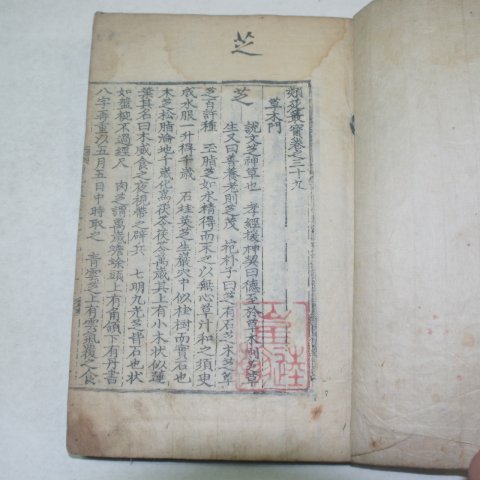 芝
類苑叢寶卷之三十九
草木門
芝
說文芝神草也 孝經援神契曰德至於草木則芝草
生又曰善養老則芝茂 抱朴子曰芝有石芝木芝草
芝百許種 玉脂芝如水精得而末之以無心草汁和之須臾
成水服一升得千歲 石桂英芝生巖穴中似桂樹而實石也
木芝松脂淪地千歲化爲茯苓茯苓萬歲其上有小木狀似蓮
葉其名曰木威食之夜視帶之辟兵 七明九光芝皆石也狀
如盤椀不過經尺 肉芝謂萬歲蟾蜍頭上有角頷下有丹書
八字再重以五月五日中時取之 青雲芝上有雲氣覆之食